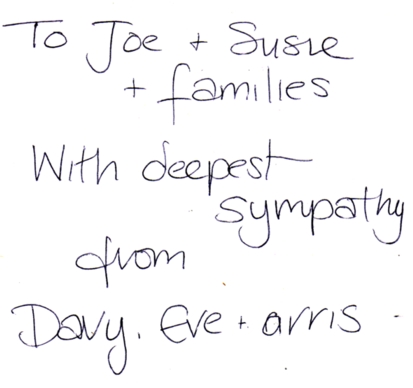 To Joe + Susie
+ families
With deepest
sympathy
from
Davy. Eve + arris